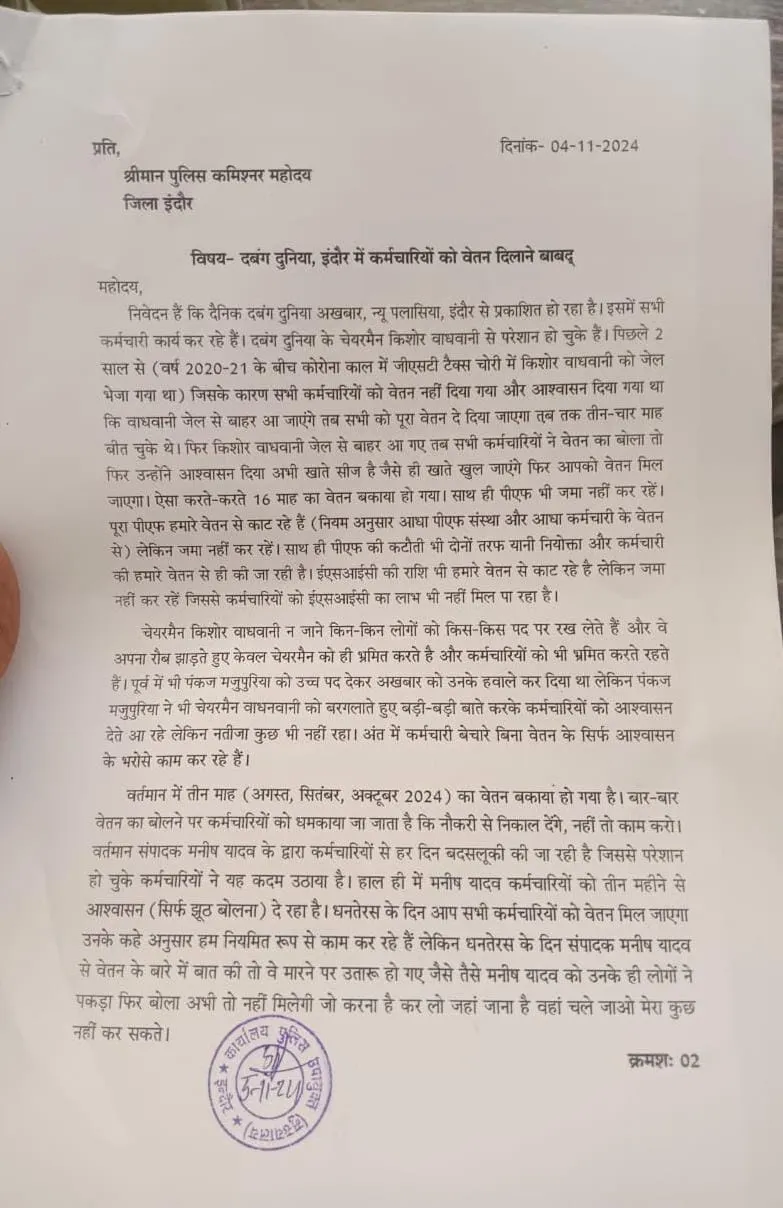 प्रति,
दिनांक- 04-11-2024
श्रीमान पुलिस कमिश्नर महोदय
जिला इंदौर
विषय- दबंग दुनिया, इंदौर में कर्मचारियों को वेतन दिलाने बाबद्
महोदय,
निवेदन हैं कि दैनिक दबंग दुनिया अखबार, न्यू पलासिया, इंदौर से प्रकाशित हो रहा है। इसमें सभी
कर्मचारी कार्य कर रहे हैं। दबंग दुनिया के चेयरमैन किशोर वाधवानी से परेशान हो चुके हैं। पिछले 2
साल से (वर्ष 2020-21 के बीच कोरोना काल में जीएसटी टैक्स चोरी में किशोर वाधवानी को जेल
भेजा गया था) जिसके कारण सभी कर्मचारियों को वेतन नहीं दिया गया और आश्वासन दिया गया था
कि वाधवानी जेल से बाहर आ जाएंगे तब सभी को पूरा वेतन दे दिया जाएगा तब तक तीन-चार माह
बीत चुके थे। फिर किशोर वाधवानी जेल से बाहर आ गए तब सभी कर्मचारियों ने वेतन का बोला तो
फिर उन्होंने आश्वासन दिया अभी खाते सीज है जैसे ही खाते खुल जाएंगे फिर आपको वेतन मिल
जाएगा। ऐसा करते-करते 16 माह का वेतन बकाया हो गया। साथ ही पीएफ भी जमा नहीं कर रहें।
पूरा पीएफ हमारे वेतन से काट रहे हैं (नियम अनुसार आधा पीएफ संस्था और आधा कर्मचारी के वेतन
से) लेकिन जमा नहीं कर रहें। साथ ही पीएफ की कटौती भी दोनों तरफ यानी नियोक्ता और कर्मचारी
की हमारे वेतन से ही की जा रही है। ईएसआईसी की राशि भी हमारे वेतन से काट रहे है लेकिन जमा
नहीं कर रहें जिससे कर्मचारियों को ईएसआईसी का लाभ भी नहीं मिल पा रहा है।
चेयरमैन किशोर वाधवानी न जाने किन-किन लोगों को किस-किस पद पर रख लेते हैं और वे
अपना रौब झाड़ते हुए केवल चेयरमैन को ही भ्रमित करते है और कर्मचारियों को भी भ्रमित करते रहते
हैं। पूर्व में भी पंकज मजुपुरिया को उच्च पद देकर अखबार को उनके हवाले कर दिया था लेकिन पंकज
मजुपुरिया ने भी चेयरमैन वाधनवानी को बरगलाते हुए बड़ी-बड़ी बाते करके कर्मचारियों को आश्वासन
देते आ रहे लेकिन नतीजा कुछ भी नहीं रहा। अंत में कर्मचारी बेचारे बिना वेतन के सिर्फ आश्वासन
के भरोसे काम कर रहे हैं।
वर्तमान में तीन माह (अगस्त, सितंबर, अक्टूबर 2024) का वेतन बकाया हो गया है। बार-बार
वेतन का बोलने पर कर्मचारियों को धमकाया जा जाता है कि नौकरी से निकाल देंगे, नहीं तो काम करो।
वर्तमान संपादक मनीष यादव के द्वारा कर्मचारियों से हर दिन बदसलूकी की जा रही है जिससे परेशान
हो चुके कर्मचारियों ने यह कदम उठाया है। हाल ही में मनीष यादव कर्मचारियों को तीन महीने से
आश्वासन (सिर्फ झूठ बोलना) दे रहा है। धनतेरस के दिन आप सभी कर्मचारियों को वेतन मिल जाएगा
उनके कहे अनुसार हम नियमित रूप से काम कर रहे हैं लेकिन धनतेरस के दिन संपादक मनीष यादव
से वेतन के बारे में बात की तो वे मारने पर उतारू हो गए जैसे तैसे मनीष यादव को उनके ही लोगों ने
पकड़ा फिर बोला अभी तो नहीं मिलेगी जो करना है कर लो जहां जाना है वहां चले जाओ मेरा कुछ
नहीं कर सकते।
क्रमशः 02
कार्यालय पुलिस उपायुक्त (मुख्यालय) ★ इन्दौर ★